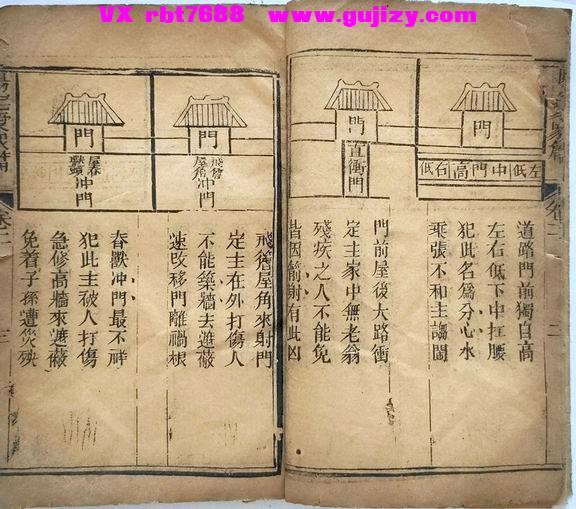 VX rbt7688 www.gujizy.com
門
左低
中門高
右低
道路門前獨自高
左右低下中扛腰
犯此名為分心水
乘張不和主謅閙
門
直衝門
門前屋後大路衝
定主家中無老翁
殘疾之人不能免
皆因箭射有此凶
卷二
二
門
飛簷屋角
冲門
飛簷屋角來射門
定主在外打傷人
不能築牆去遮蔽
速改移門離禍根
門
屋脊獸頭
冲門
脊獸冲門最不祥
犯此主被人打傷
急修高牆來遮蔽
免着子孫遭災殃
卷二
三